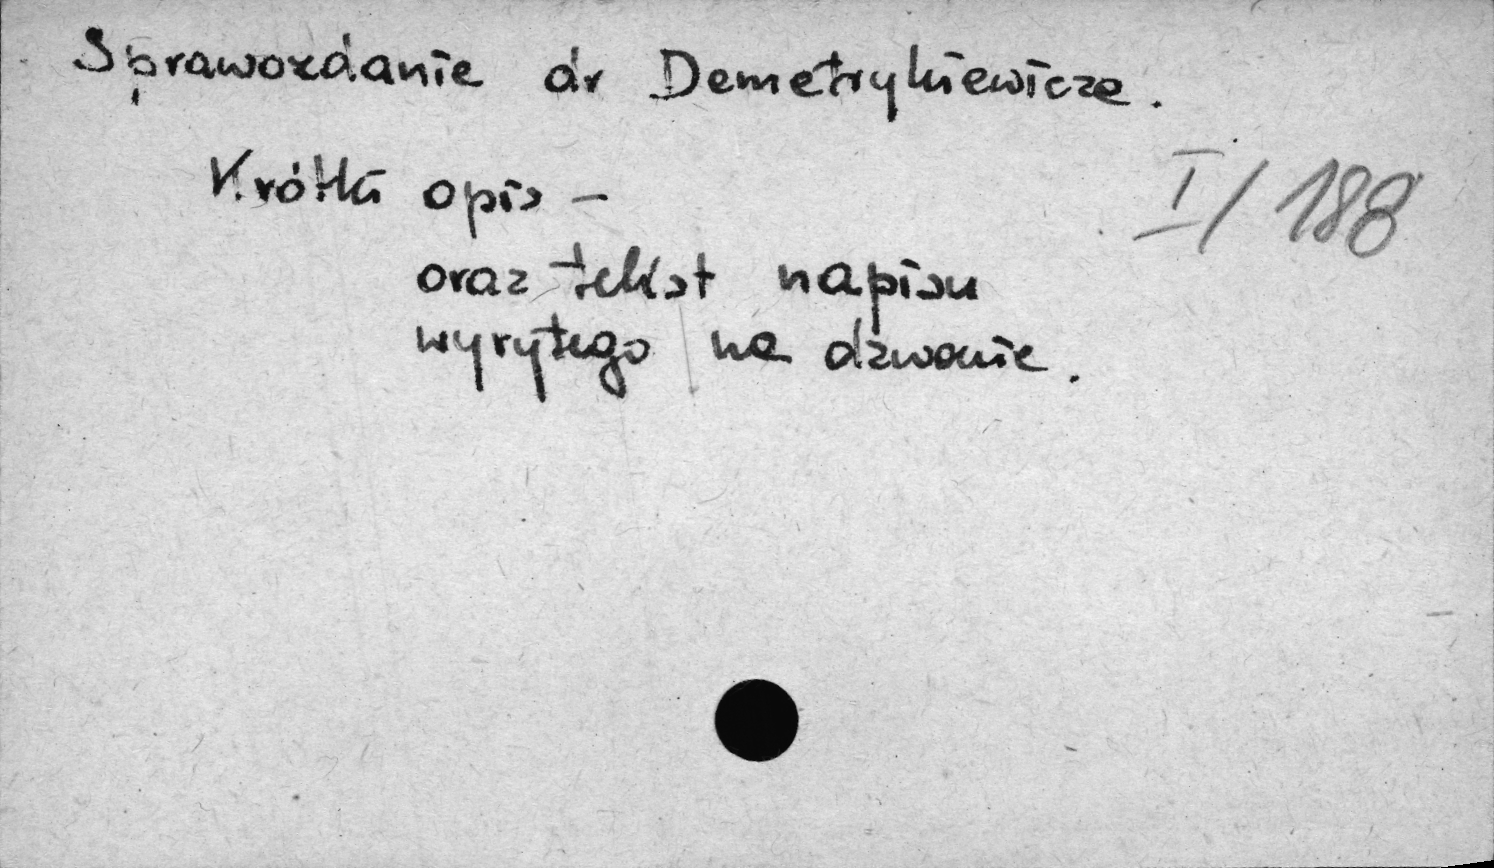 Sprawozdanie dr Demetrykiewicza.
Krótki opis –
I/188
oraz tekst napisu
wyrytego na dzwonie.